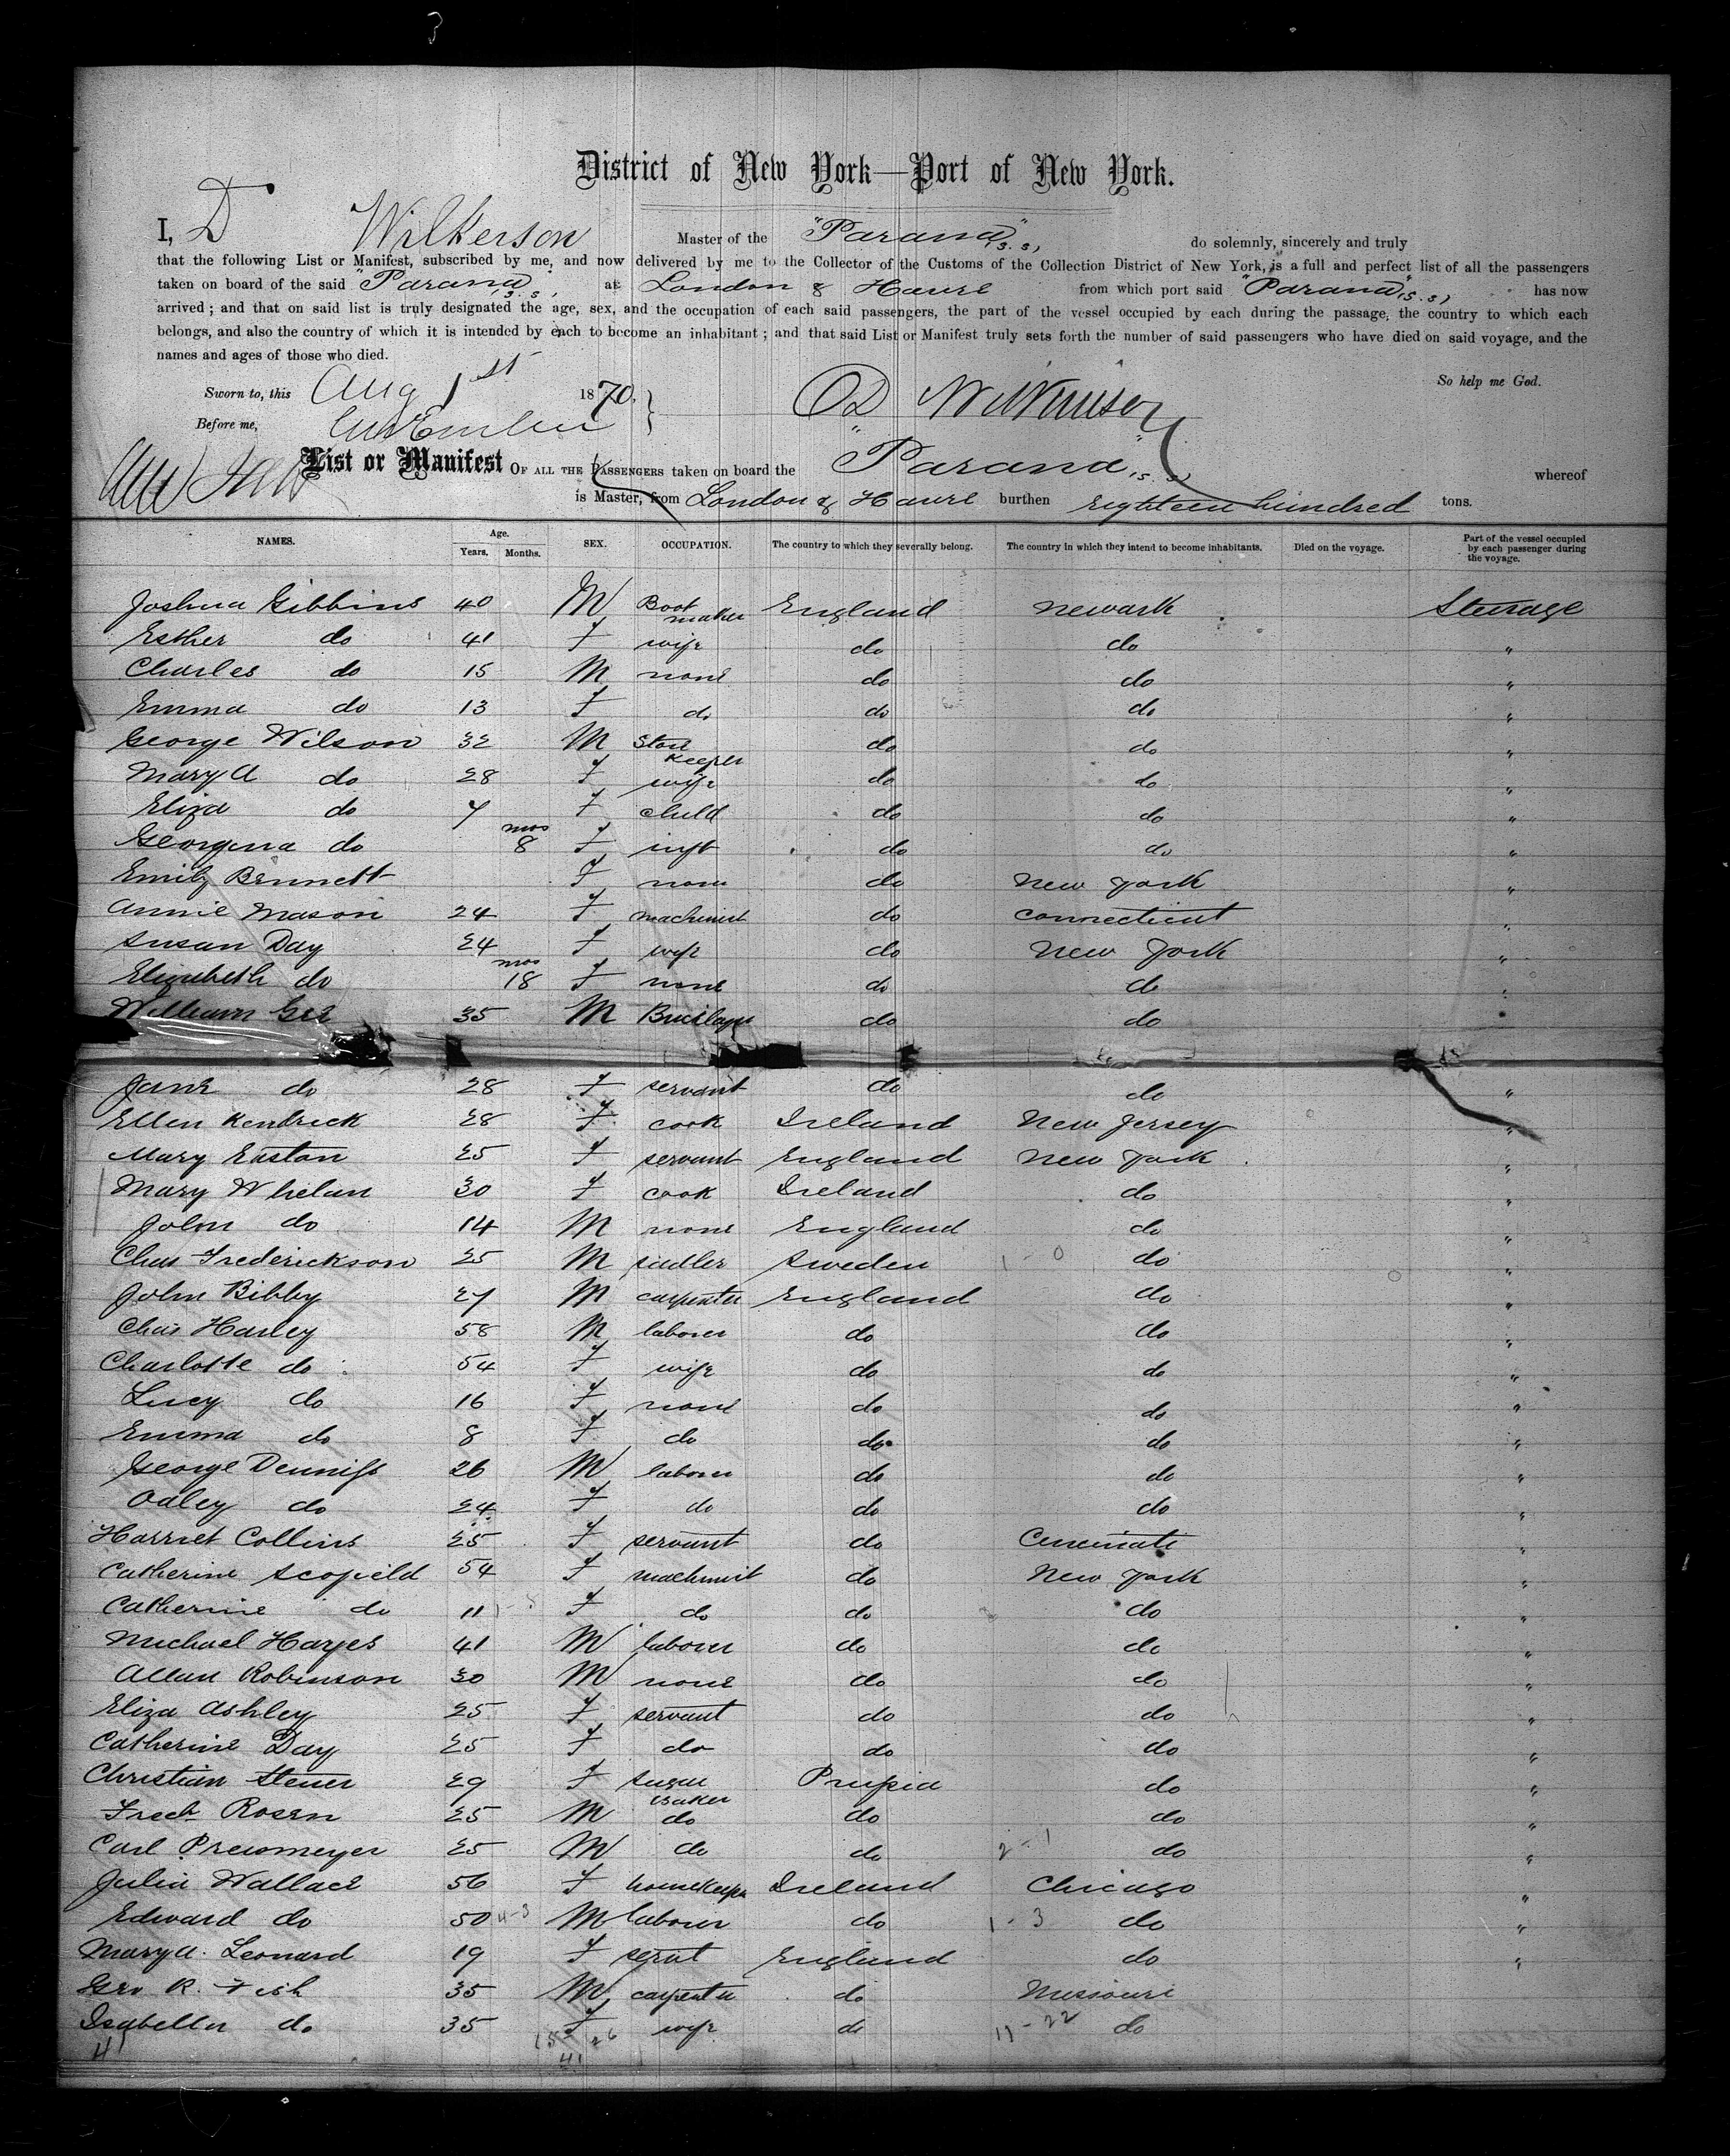 3
District of New York—Port of New York.
I, D Wilkerson Master of the "Parana" (S.S.) do solemnly, sincerely and truly
that the following List or Manifest, subscribed by me, and now delivered by me to the Collector of the Customs of the Collection District of New York, is a full and perfect list of all the passengers
taken on board of the said "Parana" S.S. at London & Havre from which port said "Parana" (S.S.) has now
arrived; and that on said list is truly designated the age, sex, and the occupation of each said passengers, the part of the vessel occupied by each during the passage, the country to which each
belongs, and also the country of which it is intended by each to become an inhabitant; and that said List or Manifest truly sets forth the number of said passengers who have died on said voyage, and the
names and ages of those who died.
So help me God.
Sworn to, this Aug 1st 1870.
Before me,
List or Manifest OF ALL THE PASSENGERS taken on board the "Parana" (S.S.) whereof
is Master, from London & Havre burthen Eighteen hundred tons.
NAMES. Age. Years. Months. SEX. OCCUPATION. The country to which they severally belong. The country in which they intend to become inhabitants. Died on the voyage. Part of the vessel occupied by each passenger during the voyage.
Joshua Gibbins 40 M Boot maker England Newark Steerage
Esther do 41 F wife do do "
Charles do 15 M none do do "
Emma do 13 F do do do "
George Wilson 32 M Store Keeper do do "
Mary A do 28 F wife do do "
Eliza do 7 F child do do "
Georgina do mos 8 F inft do do "
Emily Bennett F none do New York "
Annie Mason 24 F machinist do Connecticut "
Susan Day 24 F wife do New York "
Elizabeth do mos 18 F none do do "
William Gee 35 M Bricklayer do do "
Jane do 28 F servant do do "
Ellen Kendrick 28 F cook Ireland New Jersey "
Mary Easton 25 F servant England New York "
Mary Whelan 30 F cook Ireland do "
John do 14 M none England do "
Chas Frederickson 25 M sadler Sweden 1-0 do "
John Bibby 27 M carpenter England do "
Chas Harley 58 M laborer do do "
Charlotte do 54 F wife do do "
Lucy do 16 F none do do "
Emma do 8 F do do do "
George Denniss 26 M laborer do do "
Odley do 24 F do do do "
Harriet Collins 25 F servant do Cincinati "
Catherine Scofield 54 F machinist do New York "
Catherine do 11 F do do do "
Michael Hayes 41 M laborer do do "
Allan Robinson 30 M none do do "
Eliza Ashley 25 F servant do do "
Catherine Day 25 F do do do "
Christian Steuer 29 F Sugar baker Prussia do "
Fred Rosen 25 M do do do "
Carl Prewmeyer 25 M do do 2-1 do "
Julia Wallace 56 F housekeeper Ireland Chicago "
Edward do 50 4-3 M laborer do 1-3 do "
Mary A. Leonard 19 F servt England do "
Geo R. Fish 35 M carpenter do Missouri
Isabella do 35 F wife do 11-22 do
41 15 26
41